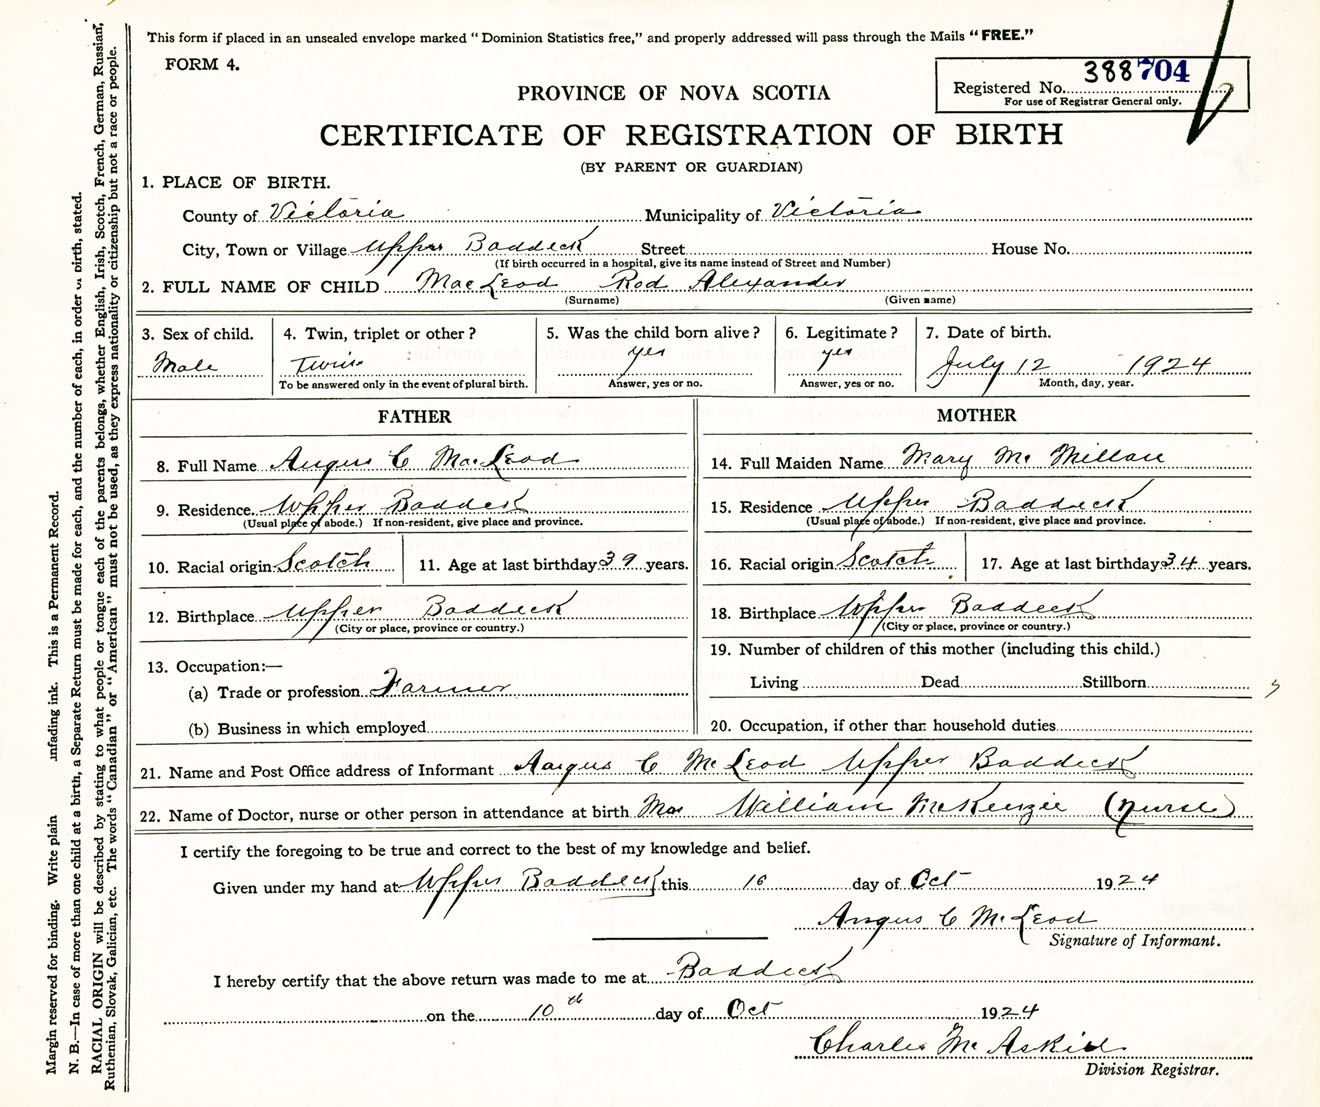 This form if placed in an unsealed envelope marked "Dominion Statistics free," and properly addressed will pass through the Mails "FREE."
FORM 4.
Registered No. 388704
For use of Registrar General only.
PROVINCE OF NOVA SCOTIA
CERTIFICATE OF REGISTRATION OF BIRTH
(BY PARENT OR GUARDIAN)
1. PLACE OF BIRTH.
County of Victoria Municipality of Victoria
City, Town or Village Upper Baddeck Street House No.
(If birth occurred in a hospital, give its name instead of Street and Number)
2. FULL NAME OF CHILD MacLeod Rod Alexander
(Surname) (Given name)
3. Sex of child. 4. Twin, triplet or other? 5. Was the child born alive? 6. Legitimate? 7. Date of birth.
Male Twins yes yes July 12 1924
To be answered only in the event of plural birth. Answer, yes or no. Answer, yes or no. Month, day, year.
FATHER
8. Full Name Angus C MacLeod
9. Residence. Upper Baddeck
(Usual place of abode.) If non-resident, give place and province.
10. Racial origin Scotch 11. Age at last birthday 39 years.
12. Birthplace Upper Baddeck
(City or place, province or country.)
13. Occupation:—
(a) Trade or profession Farmer
(b) Business in which employed
MOTHER
14. Full Maiden Name Mary McMillan
15. Residence Upper Baddeck
(Usual place of abode.) If non-resident, give place and province.
16. Racial origin Scotch 17. Age at last birthday 34 years.
18. Birthplace Upper Baddeck
(City or place, province or country.)
19. Number of children of this mother (including this child.)
Living Dead Stillborn
20. Occupation, if other than household duties
21. Name and Post Office address of Informant Angus C McLeod Upper Baddeck
22. Name of Doctor, nurse or other person in attendance at birth Mrs William McKenzie (nurse)
I certify the foregoing to be true and correct to the best of my knowledge and belief.
Given under my hand at Upper Baddeck this 10 day of Oct 1924
Angus C McLeod
Signature of Informant.
I hereby certify that the above return was made to me at Baddeck
on the 10th day of Oct 1924
Charles McAskill
Division Registrar.
Margin reserved for binding. Write plain unfading ink. This is a Permanent Record.
N. B.—In case of more than one child at a birth, a Separate Return must be made for each, and the number of each, in order of birth, stated.
RACIAL ORIGIN will be described by stating to what people or tongue each of the parents belongs, whether English, Irish, Scotch, French, German, Russian,
Ruthenian, Slovak, Galician, etc. The words "Canadian" or "American" must not be used, as they express nationality or citizenship but not a race or people.